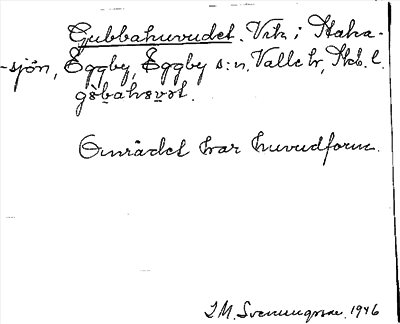 Gubbahuvudet. Vik i Staha-
-sjön, Eggby, Eggby s:n, Valle hr, Skb. l.
Området har huvudform.
S.M. Svenungsson 1946